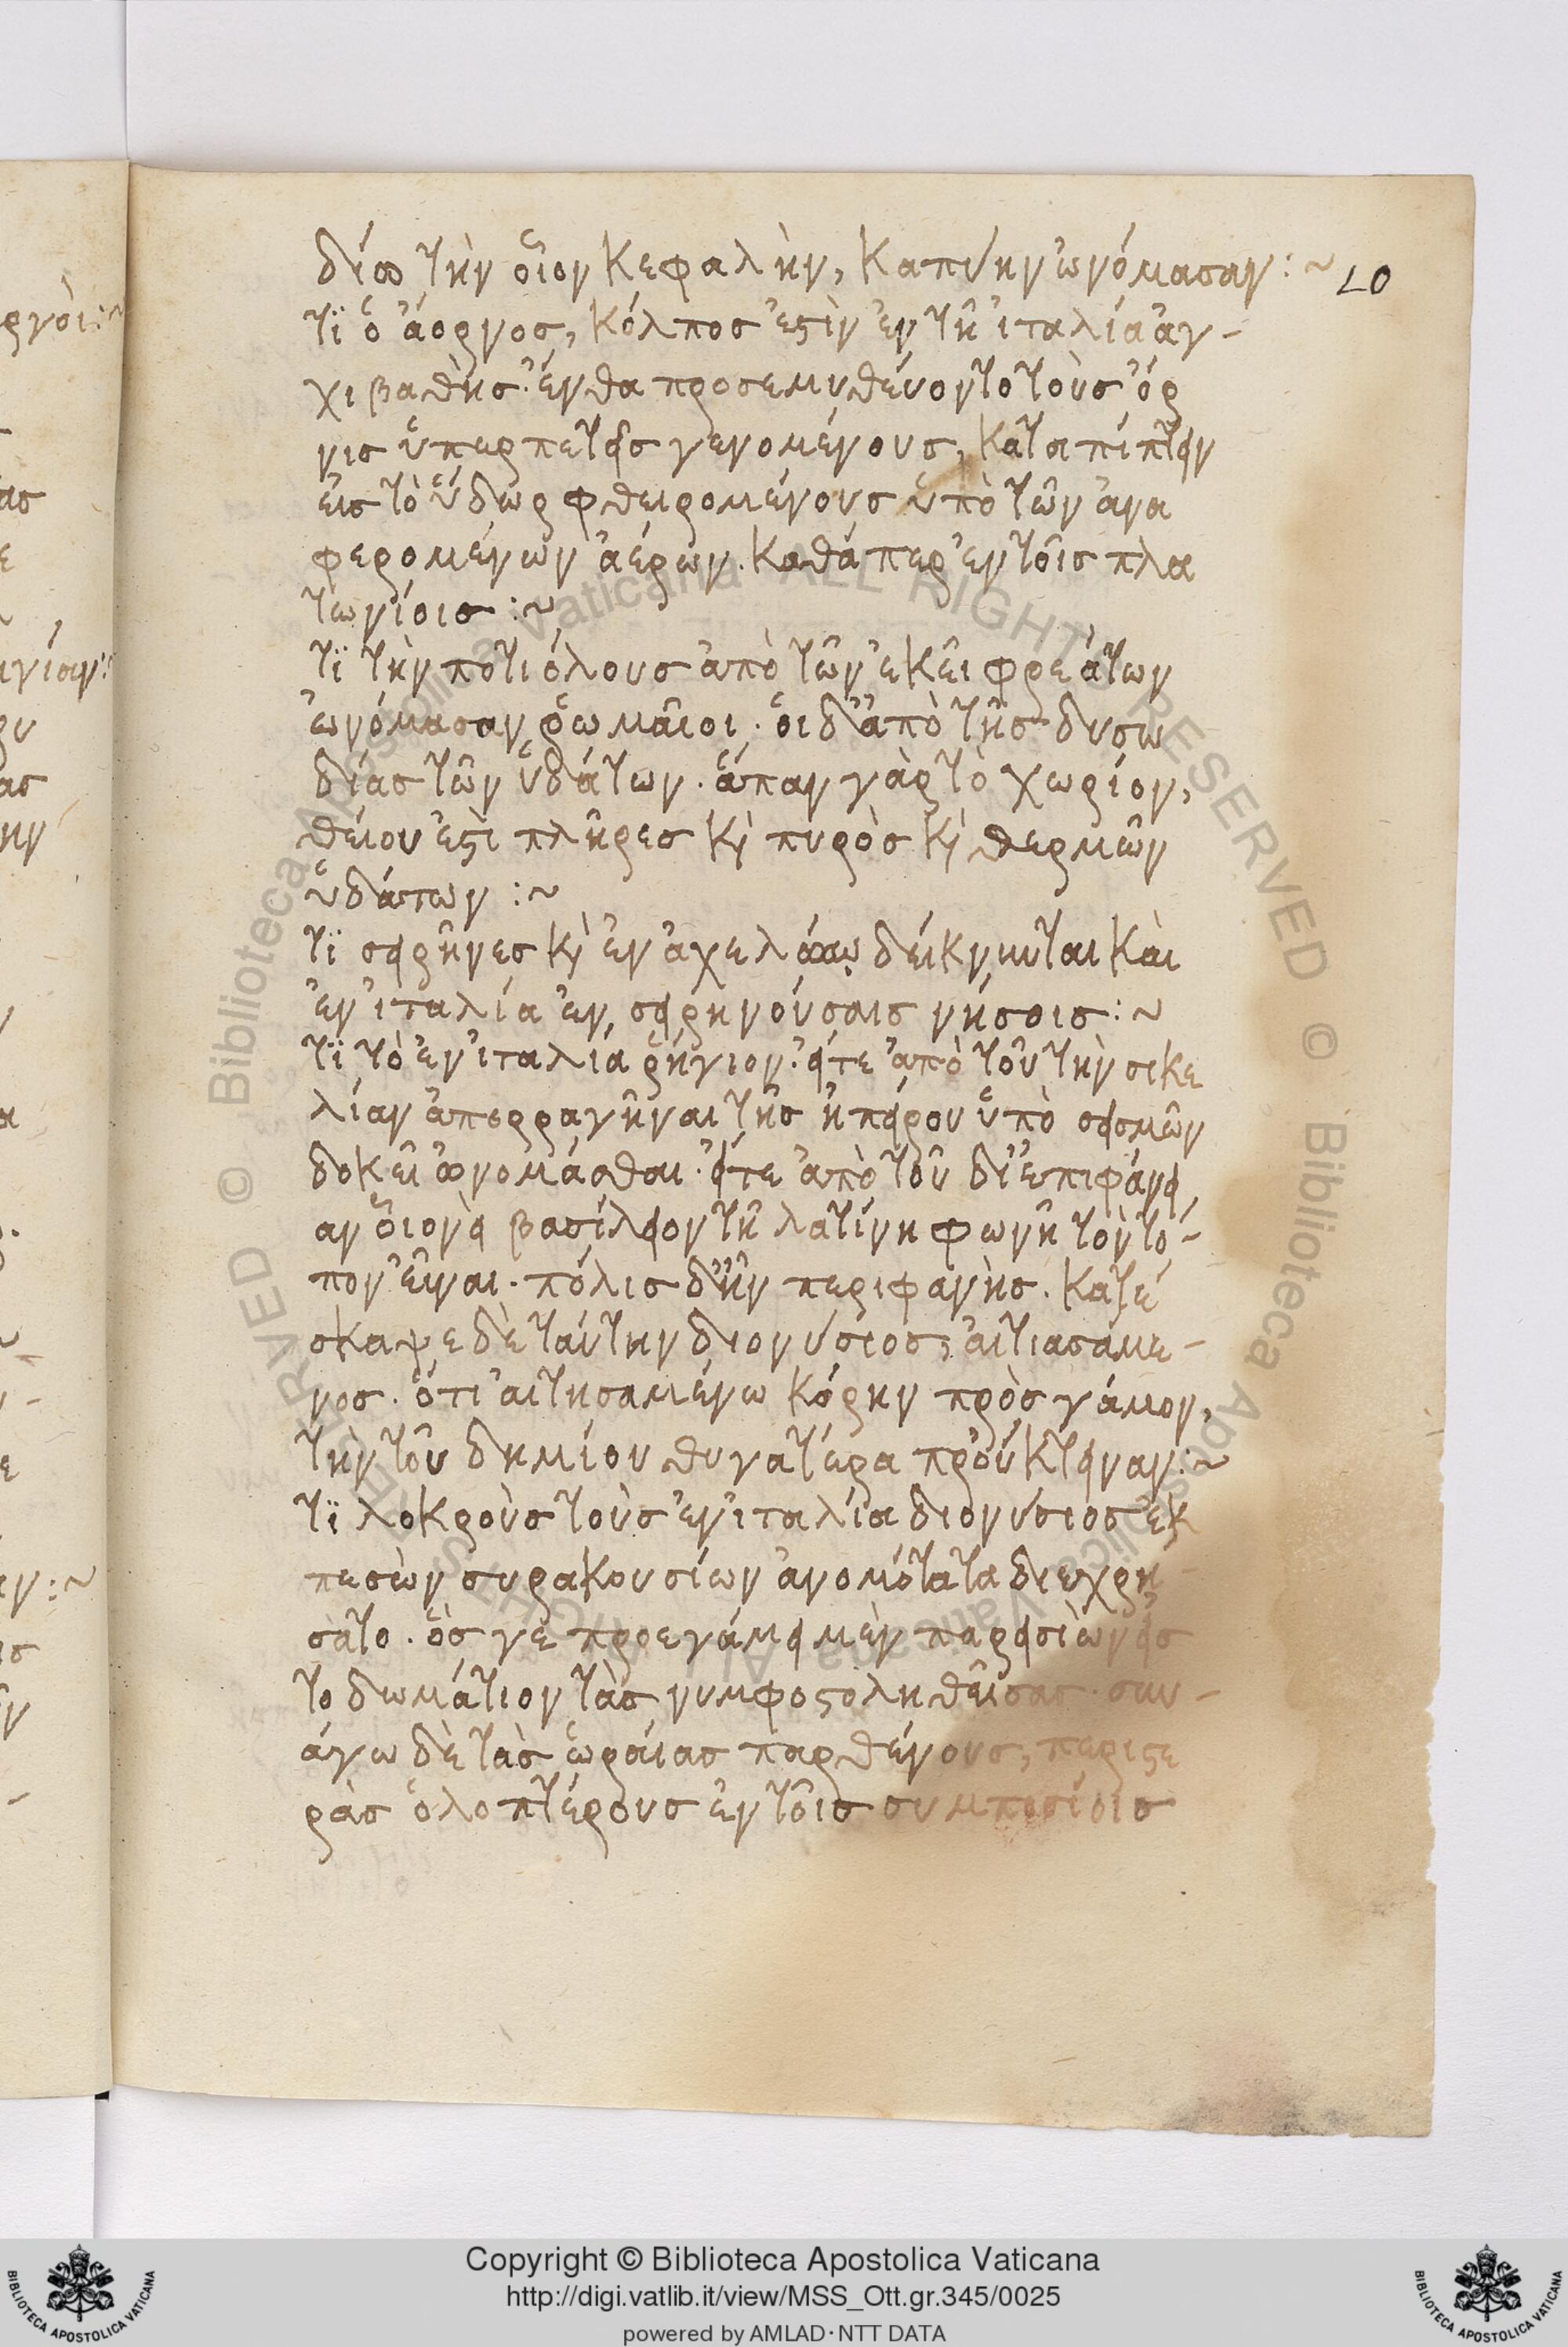 δίῳ τὴν οἷον κεφαλὴν, καπύην ὠνόμασαν :~ 20
τϊ ὁ ἄορνος, κόλπος ἐστὶν ἐν τῆ ἰταλία ἀγ-
χιβαθὴς. ἔνθα προσεμυθεύοντο τοὺς ὄρ
νις ὑπερπετεῖς γενομένους, καταπίπτειν
εἰς τὸ ὕδωρ φθειρομένους ὑπὸ τῶν ἀνα
φερομένων ἀέρων. καθάπερ ἐν τοῖς πλα
τωνίοις :~
τϊ τὴν ποτιόλους ἀπὸ τῶν ἐκεῖ φρεάτων
ὠνόμασαν ῥωμαῖοι. οἱ δ' ἀπὸ τῆς δυσω
δίας τῶν ὑδάτων. ἅπαν γὰρ τὸ χωρίον,
θείου ἐστὶ πλῆρες κὶ πυρὸς κὶ θερμῶν
ὑδάτων :~
τϊ σειρῆνες κὶ ἐν ἀχελώω δείκνυται καὶ
ἐν ἰταλία ἐν σειρηνούσαις νήσοις :~
τϊ τὸ ἐν ἰταλία ῥήγιον. εἴτε ἀπὸ τοῦ τὴν σικε
λίαν ἀπορραγῆναι τῆς ἠπείρου ὑπὸ σεισμῶν
δοκεῖ ὠνομάσθαι. εἴτε ἀπὸ τοῦ δι' ἐπιφάνει
αν οἱονεὶ βασίλειον τῆ λατίνη φωνῆ τὸν τό-
πον εἶναι. πόλις δ' ἦν περιφανὴς. κατέ
σκαψε δὲ ταύτην διονύσιος, αἰτιασάμε-
νος. ὅτι αἰτησαμένω κόρην πρὸς γάμον,
τὴν τοῦ δημίου θυγατέρα προύκτειναν :~
τϊ λοκροὺς τοὺς ἐν ἰταλία διονύσιος ἐκ
πεσὼν συρακουσίων ἀνομότατα διεχρή
σατο. ὅς γε προεγάμει μὲν παρεισιὼν εἰς
το δωμάτιον τὰς νυμφοστοληθεῖσας. συν-
άγω δὲ τὰς ὡραίας παρθένους, περιστε
ρὰς ὁλοπτέρους ἐν τοῖς συμποσίοις
ργοὶ :~
ας
ε
νίαν :
ου
ας
ην
ν
α
ε
αν :~
ις
ν
Copyright © Biblioteca Apostolica Vaticana
http://digi.vatlib.it/view/MSS_Ott.gr.345/0025
powered by AMLAD·NTT DATA
BIBLIOTECA APOSTOLICA VATICANA
BIBLIOTECA APOSTOLICA VATICANA
© Biblioteca Apostolica Vaticana ALL RIGHTS RESERVED © Biblioteca Apostolica Vaticana ALL RIGHTS RESERVED